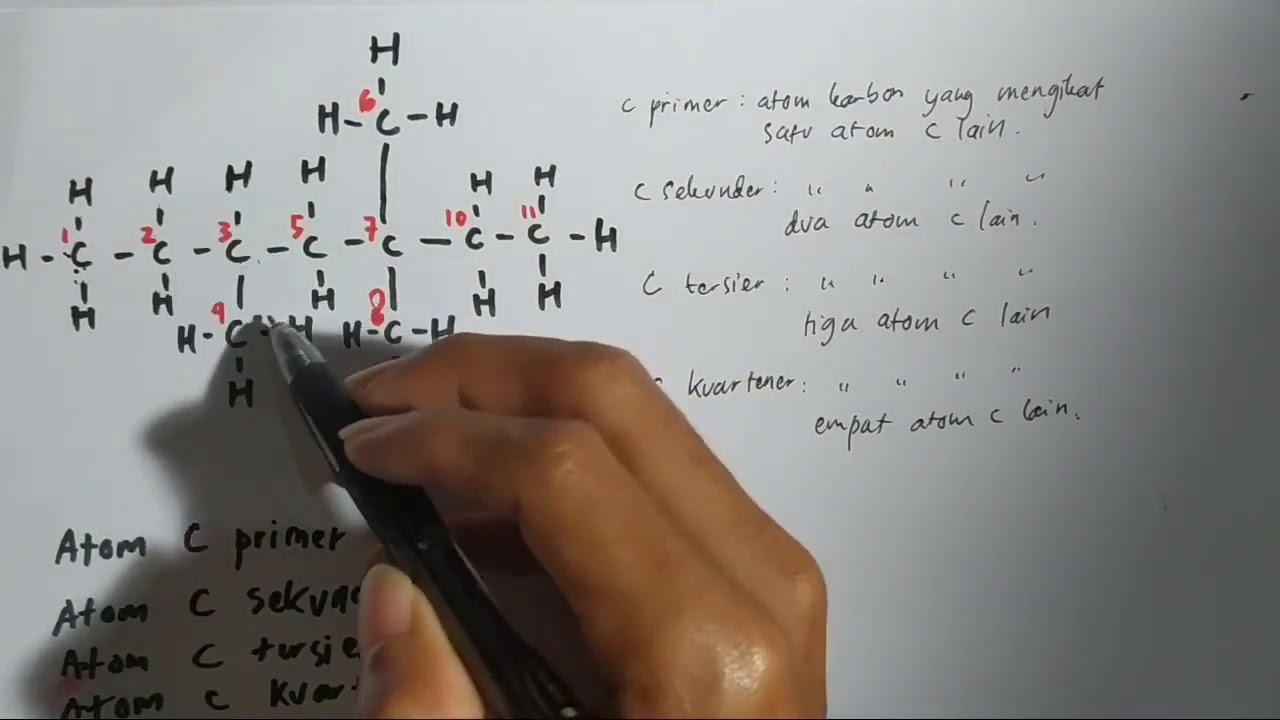 H
6
H-C-H
H H H H H H
1 2 3 5 7 10 11
H-C-C-C-C-C-C-C-H
H H H H H
9 8
H-C-H H-C-H
H
C primer : atom karbon yang mengikat
satu atom C lain.
C sekunder : " " " "
dua atom C lain.
C tersier : " " " "
tiga atom C lain
kvartener : " " " "
empat atom C lain.
Atom C primer
Atom C
Atom C
Atom C